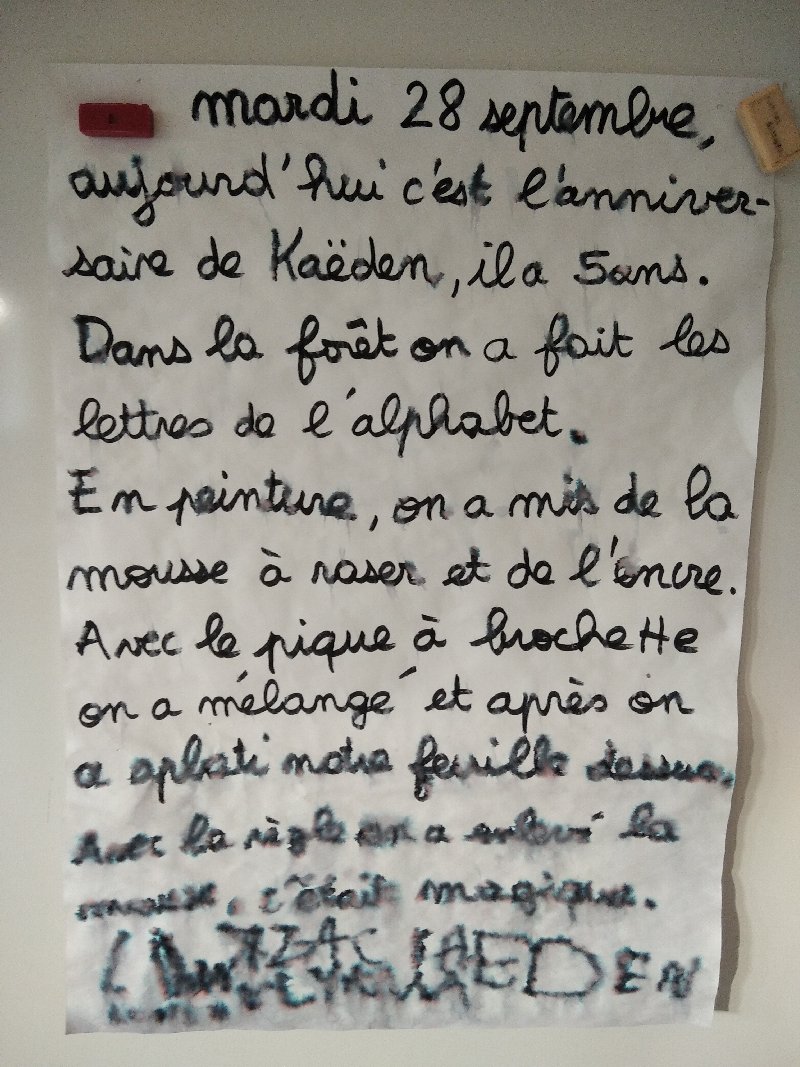 mardi 28 septembre,
aujourd'hui c'est l'anniver-
saire de Kaëden, il a 5 ans.
Dans la forêt on a fait les
lettres de l'alphabet.
En peinture, on a mis de la
mousse à raser et de l'encre.
Avec le pique à brochette
on a mélangé et après on
a aplati notre feuille dessus.
Avec la règle on a enlevé la
mousse, c'était magique.